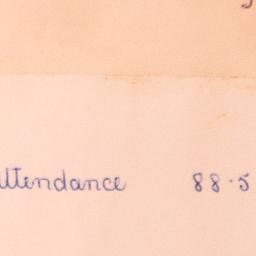 attendance 88.5